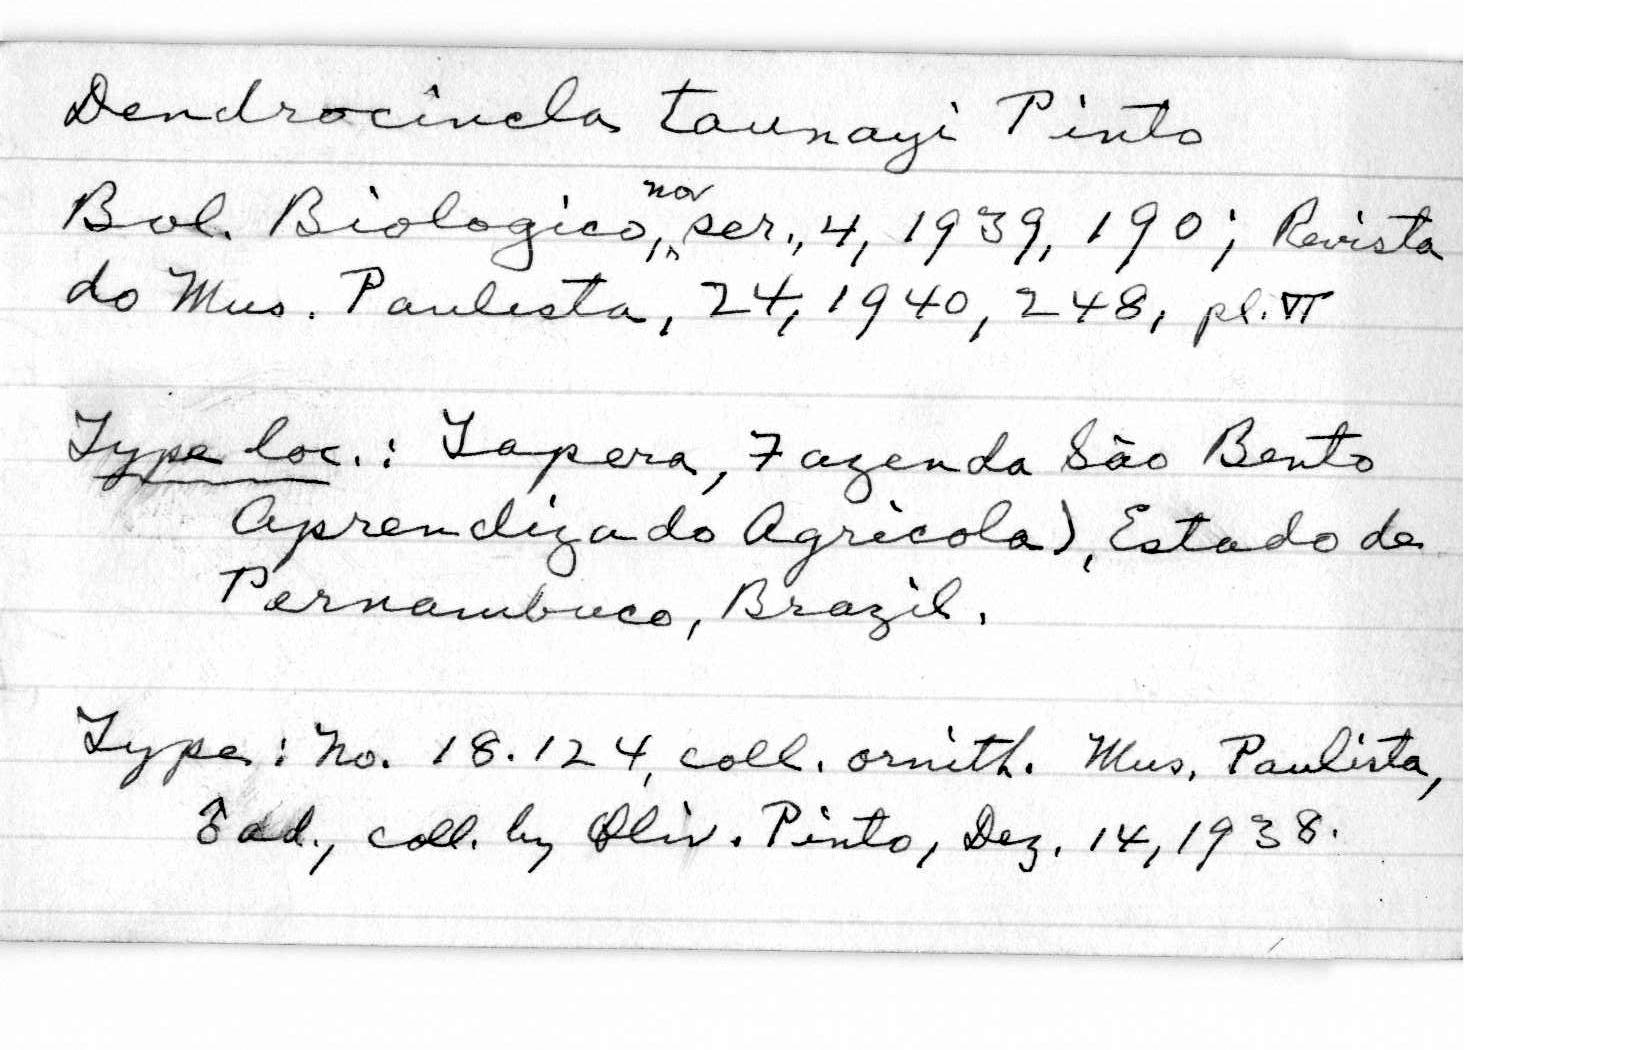 Dendrocincla taunayi Pinto
Bol. Biologico, nov ser., 4, 1939, 190; Revista
do Mus. Paulista, 24, 1940, 248, pl. VI
Type loc.: Tapera, Fazenda São Bento
Aprendizado Agricola), Estado de
Pernambuco, Brazil.
Type: No. 18.124, coll. ornith. Mus. Paulista,
♂ ad., coll. by Oliv. Pinto, Dez. 14, 1938.